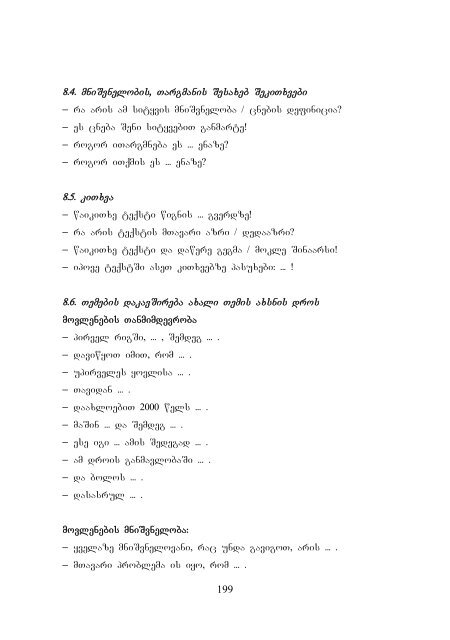 8.4. მნიშვნელობის, თარგმანის შესახებ შეკითხვები
– რა არის ამ სიტყვის მნიშვნელობა / ცნების დეფინიცია?
– ეს ცნება შენი სიტყვებით განმარტე!
– როგორ ითარგმნება ეს ... ენაზე?
– როგორ ითქმის ეს ... ენაზე?
8.5. კითხვა
– წაიკითხე ტექსტი წიგნის ... გვერდზე!
– რა არის ტექსტის მთავარი აზრი / დედააზრი?
– წაიკითხე ტექსტი და დაწერე გეგმა / მოკლე შინაარსი!
– იპოვე ტექსტში ასეთ კითხვებზე პასუხები: ... !
8.6. თემების დაკავშირება ახალი თემის ახსნის დროს
მოვლენების თანმიმდევრობა
– პირველ რიგში, ... , შემდეგ ... .
– დავიწყოთ იმით, რომ ... .
– უპირველეს ყოვლისა ... .
– თავიდან ... .
– დაახლოებით 2000 წელს ... .
– მაშინ ... და შემდეგ ... .
– ესე იგი ... ამის შედეგად ... .
– ამ დროის განმავლობაში ... .
– და ბოლოს ... .
– დასასრულ ... .
მოვლენების მნიშვნელობა:
– ყველაზე მნიშვნელოვანი, რაც უნდა გავიგოთ, არის ... .
– მთავარი პრობლემა ის იყო, რომ ... .
199